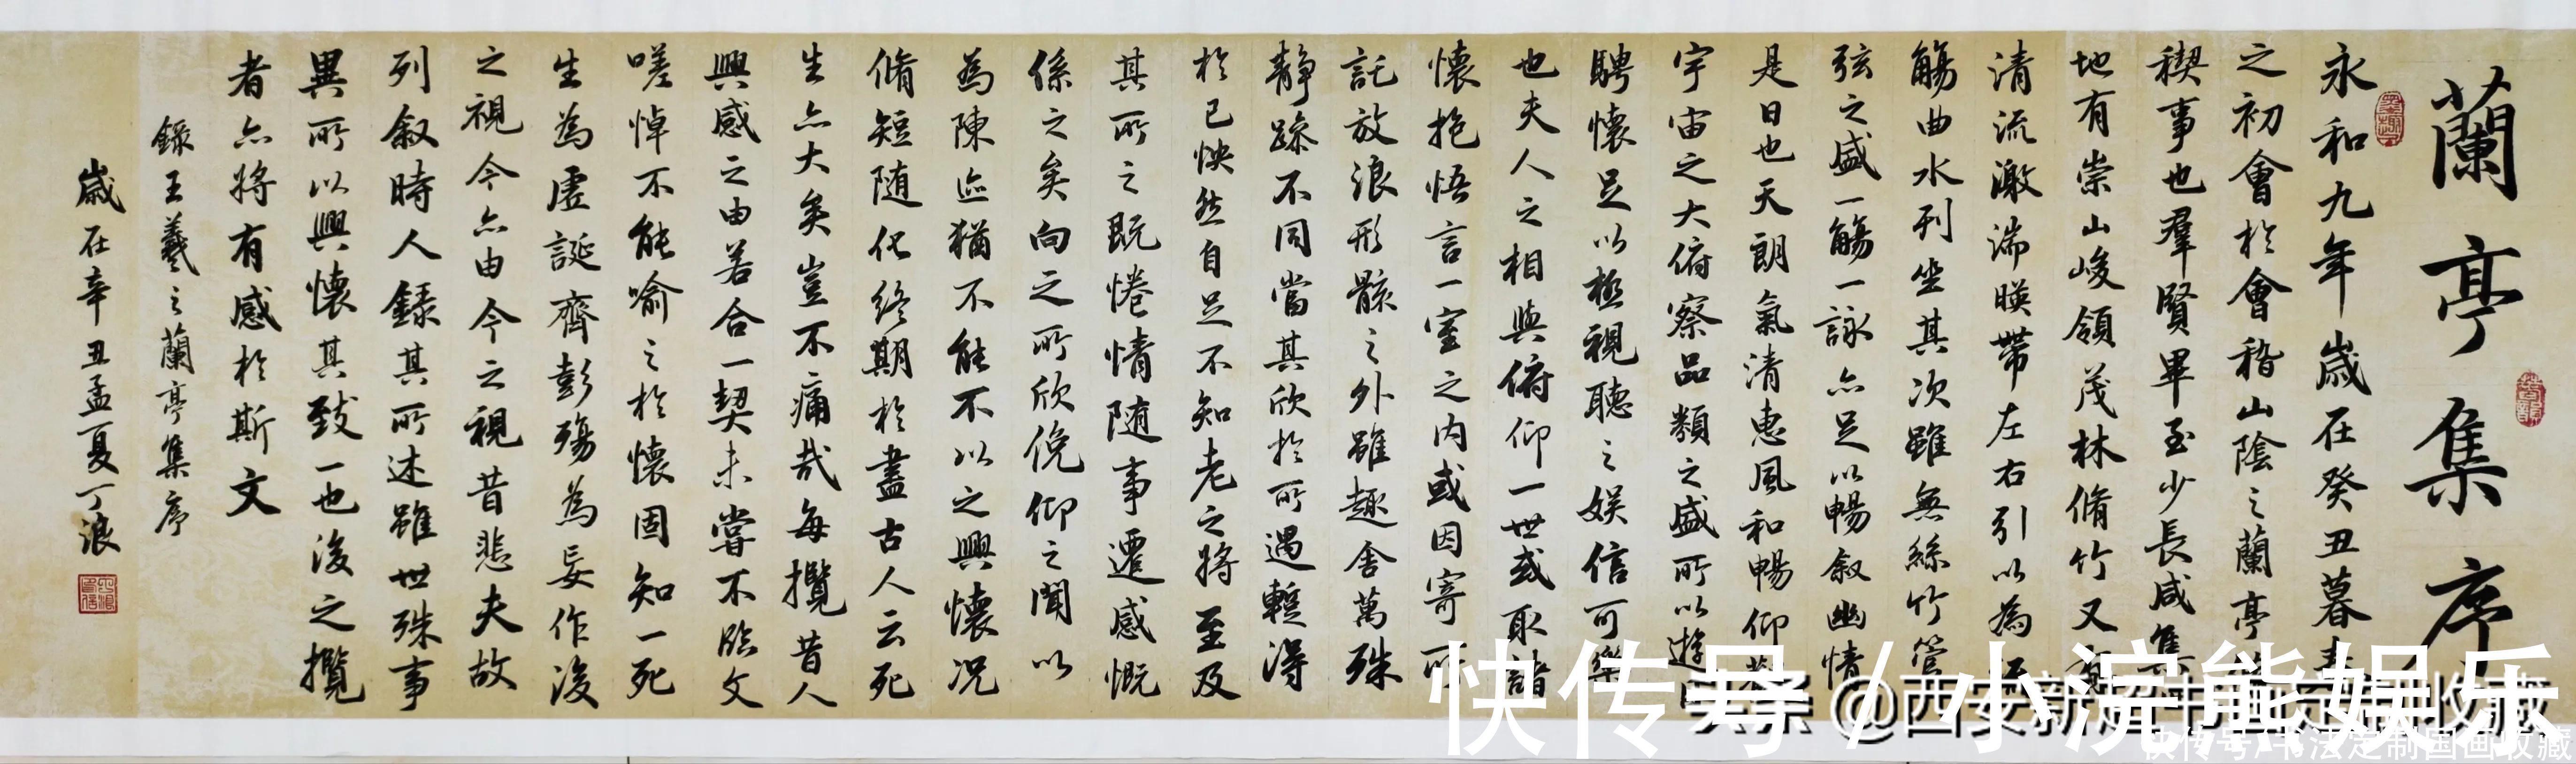 蘭亭集序
永和九年歲在癸丑暮春
之初會於會稽山陰之蘭亭
稧事也羣賢畢至少長咸集
地有崇山峻領茂林脩竹又有
清流激湍暎帶左右引以為
觴曲水列坐其次雖無絲竹管
弦之盛一觴一詠亦足以暢叙幽情
是日也天朗氣清惠風和暢仰
宇宙之大俯察品類之盛所以遊
騁懷足以極視聽之娛信可樂
也夫人之相與俯仰一世或取諸
懷抱悟言一室之内或因寄所
託放浪形骸之外雖趣舎萬殊
静躁不同當其欣於所遇蹔得
於己怏然自足不知老之將至及
其所之既惓情随事遷感慨
係之矣向之所欣俛仰之間以
為陳迹猶不能不以之興懷况
脩短随化終期於盡古人云死
生亦大矣豈不痛哉每攬昔人
興感之由若合一契未嘗不臨文
嗟悼不能喻之於懷固知一死
生為虛誕齊彭殤為妄作後
之視今亦由今之視昔悲夫故
列叙時人錄其所述雖世殊事
異所以興懷其致一也後之攬
者亦將有感於斯文
錄王羲之蘭亭集序
歲在辛丑孟夏丁浪
快传号/小浣熊娱乐
头条@西安新起书画定制收藏
快传号/书法定制国画收藏